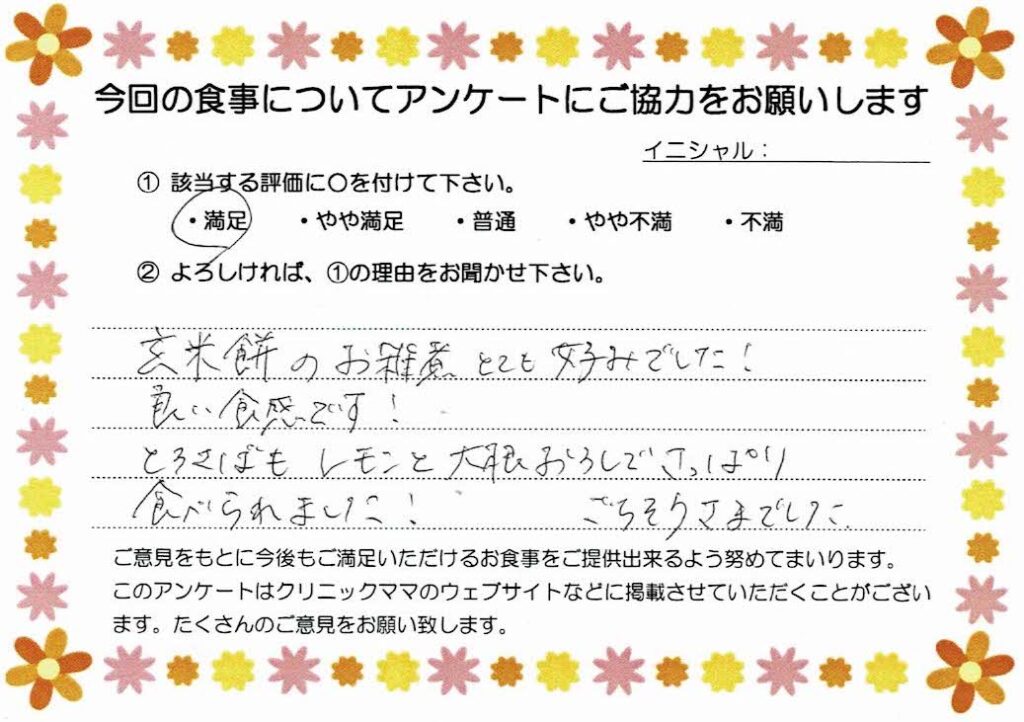 今回の食事についてアンケートにご協力をお願いします
イニシャル：
① 該当する評価に〇を付けて下さい。
・満足 ・やや満足 ・普通 ・やや不満 ・不満
② よろしければ、①の理由をお聞かせ下さい。
玄米餅のお雑煮とても好みでした！
良い食感です！
とろさばもレモンと大根おろしでさっぱり
食べられました！ ごちそうさまでした
ご意見をもとに今後もご満足いただけるお食事をご提供出来るよう努めてまいります。
このアンケートはクリニックママのウェブサイトなどに掲載させていただくことがござい
ます。たくさんのご意見をお願い致します。